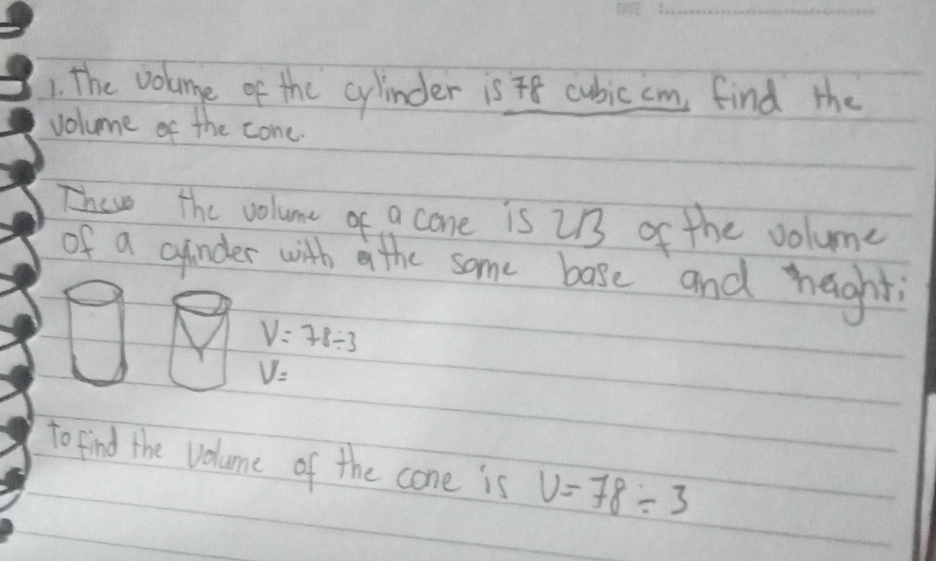 1. The volume of the cylinder is 78 cubic cm, find the
volume of the cone.
the volume of a cone is 2/3 of the volume
of a cylinder with the same base and height:
V= 78÷3
V=
To find the volume of the cone is V= 78 ÷ 3